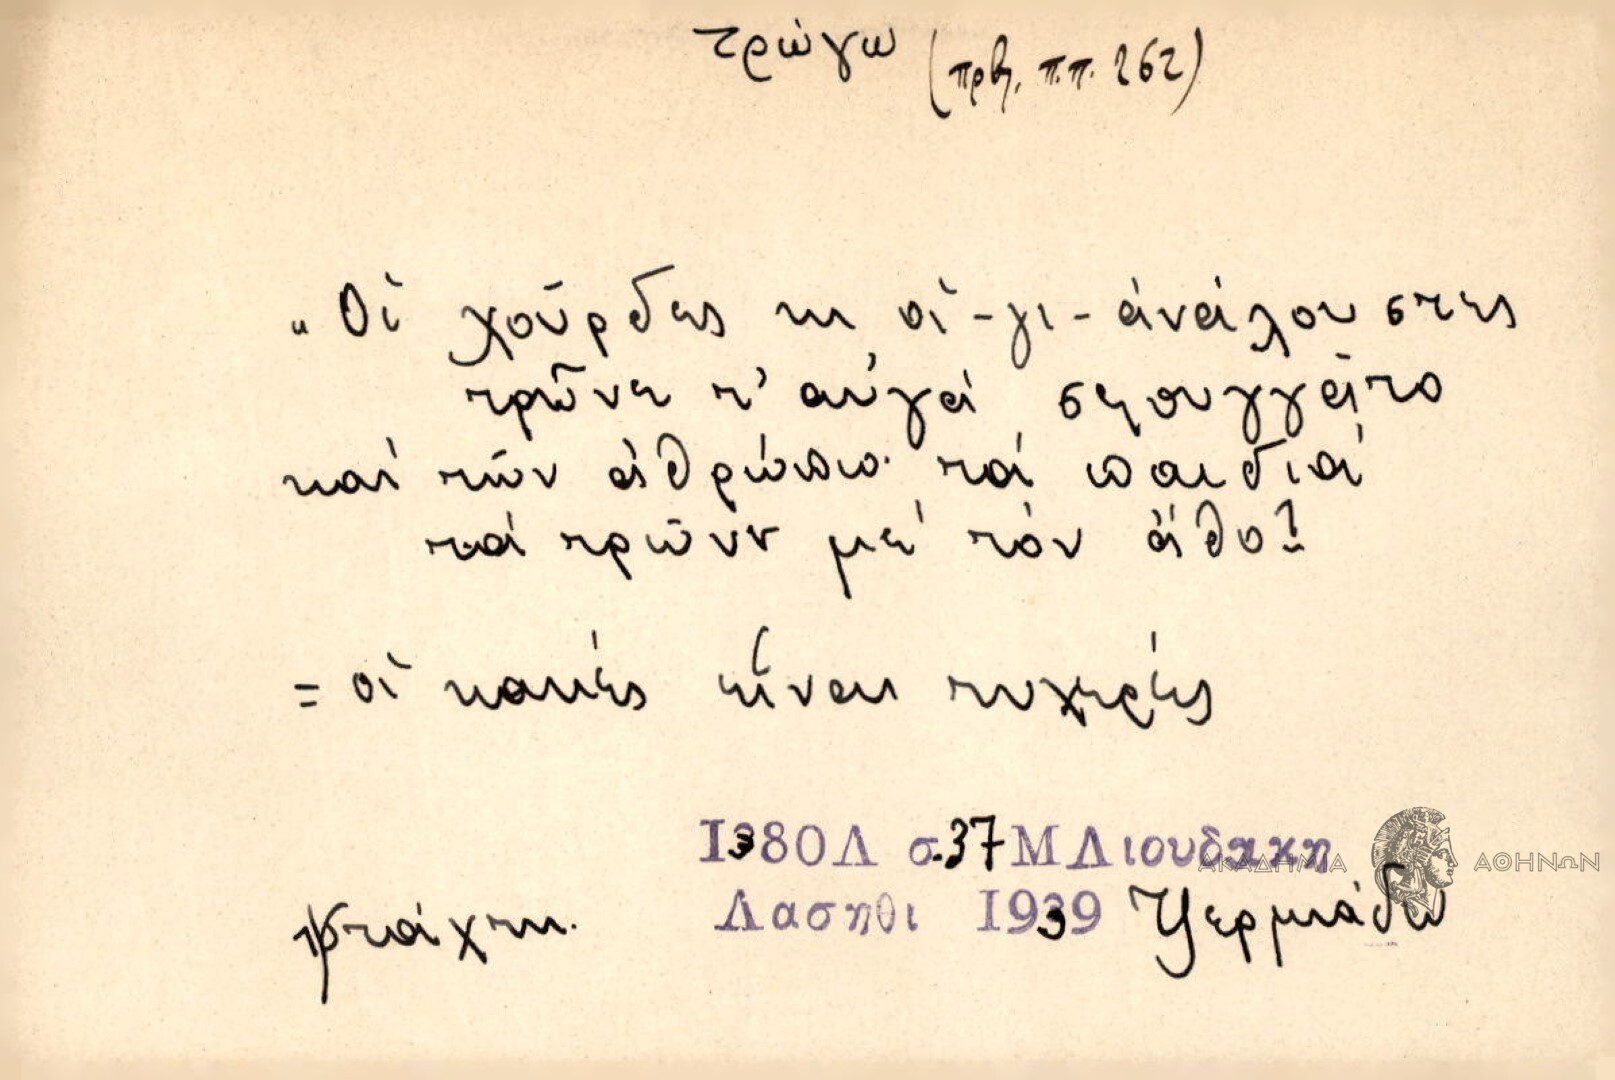 τρώγω (πρβ. π.π. 262)
„Οἱ χοῦρδες κι οἱ-γι-ἀνάλουστες
τρῶνε τ' αὐγά σφουγγᾶτο
καί τῶν ἀθρώπω τά παιδιά
τά τρῶνν μέ τόν ἄθο"!
= οἱ κακές εἶναι τυχερές
1380Λ σ.37 Μ Λιουδακη
Λασηθι 1939 Τζερμιάδω
ΑΚΑΔΗΜΙΑ ΑΘΗΝΩΝ